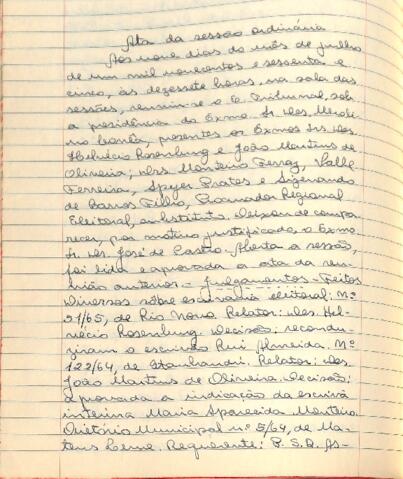 Ata da sessão ordinária
Aos nove dias do mês de julho
de um mil novecentos e sessenta e
cinco, às dezessete horas, na sala das
sessões, reuniu-se o E. Tribunal, sob
a presidência do Exmo. Sr. Des. Merolino
Corrêa, presentes os Exmos Srs. Des.
Helvécio Rosenburg e João Martins de
Oliveira; Drs. Monteiro Ferraz, Valle
Ferreira, Spyer Prates e Sigenando
de Barros Filho, Procurador Regional
Eleitoral, substituto. Deixou de compa-
recer, por motivo justificado, o Exmo.
Sr. Dr. José de Castro. Aberta a sessão,
foi lida e aprovada a ata da reu-
nião anterior. - Julgamentos - Feitos
Diversos sôbre escrivania eleitoral: Nº
21/65, de Rio Novo. Relator: Des. Hel-
vécio Rosenburg. Decisão: recondu-
ziram o escrivão Rui Almeida. Nº
122/64, de Itanhandú. Relator: Des.
João Martins de Oliveira. Decisão:
aprovada a indicação da escrivã
interina Maria Aparecida Monteiro.
Diretório Municipal n.º 5/64, de Ma-
teus Leme. Requerente: P. S. D. As-